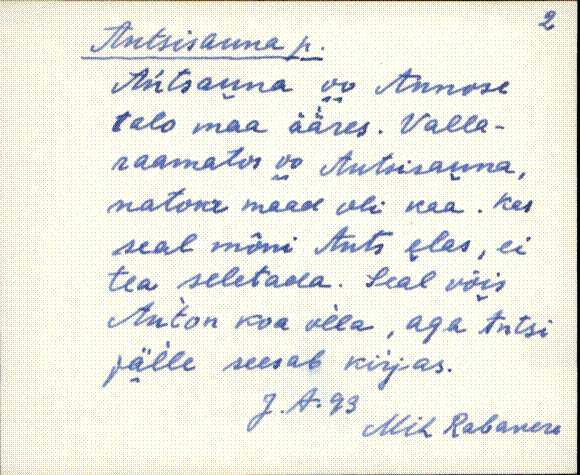 2
Antsisauna p.
Ańtsau̬na o̬o̬ Annose
talo maa ääres. Valla-
raamatos o̬o̬ Antsisau̬na,
natoke maad oli kaa. Kas
seal mõni Ants e̬las, ei
tea seletada. Seal võis
Anton koa olla, aga Antsi
jälle seesab kirjas.
J. A. 93
Mih Rabavere